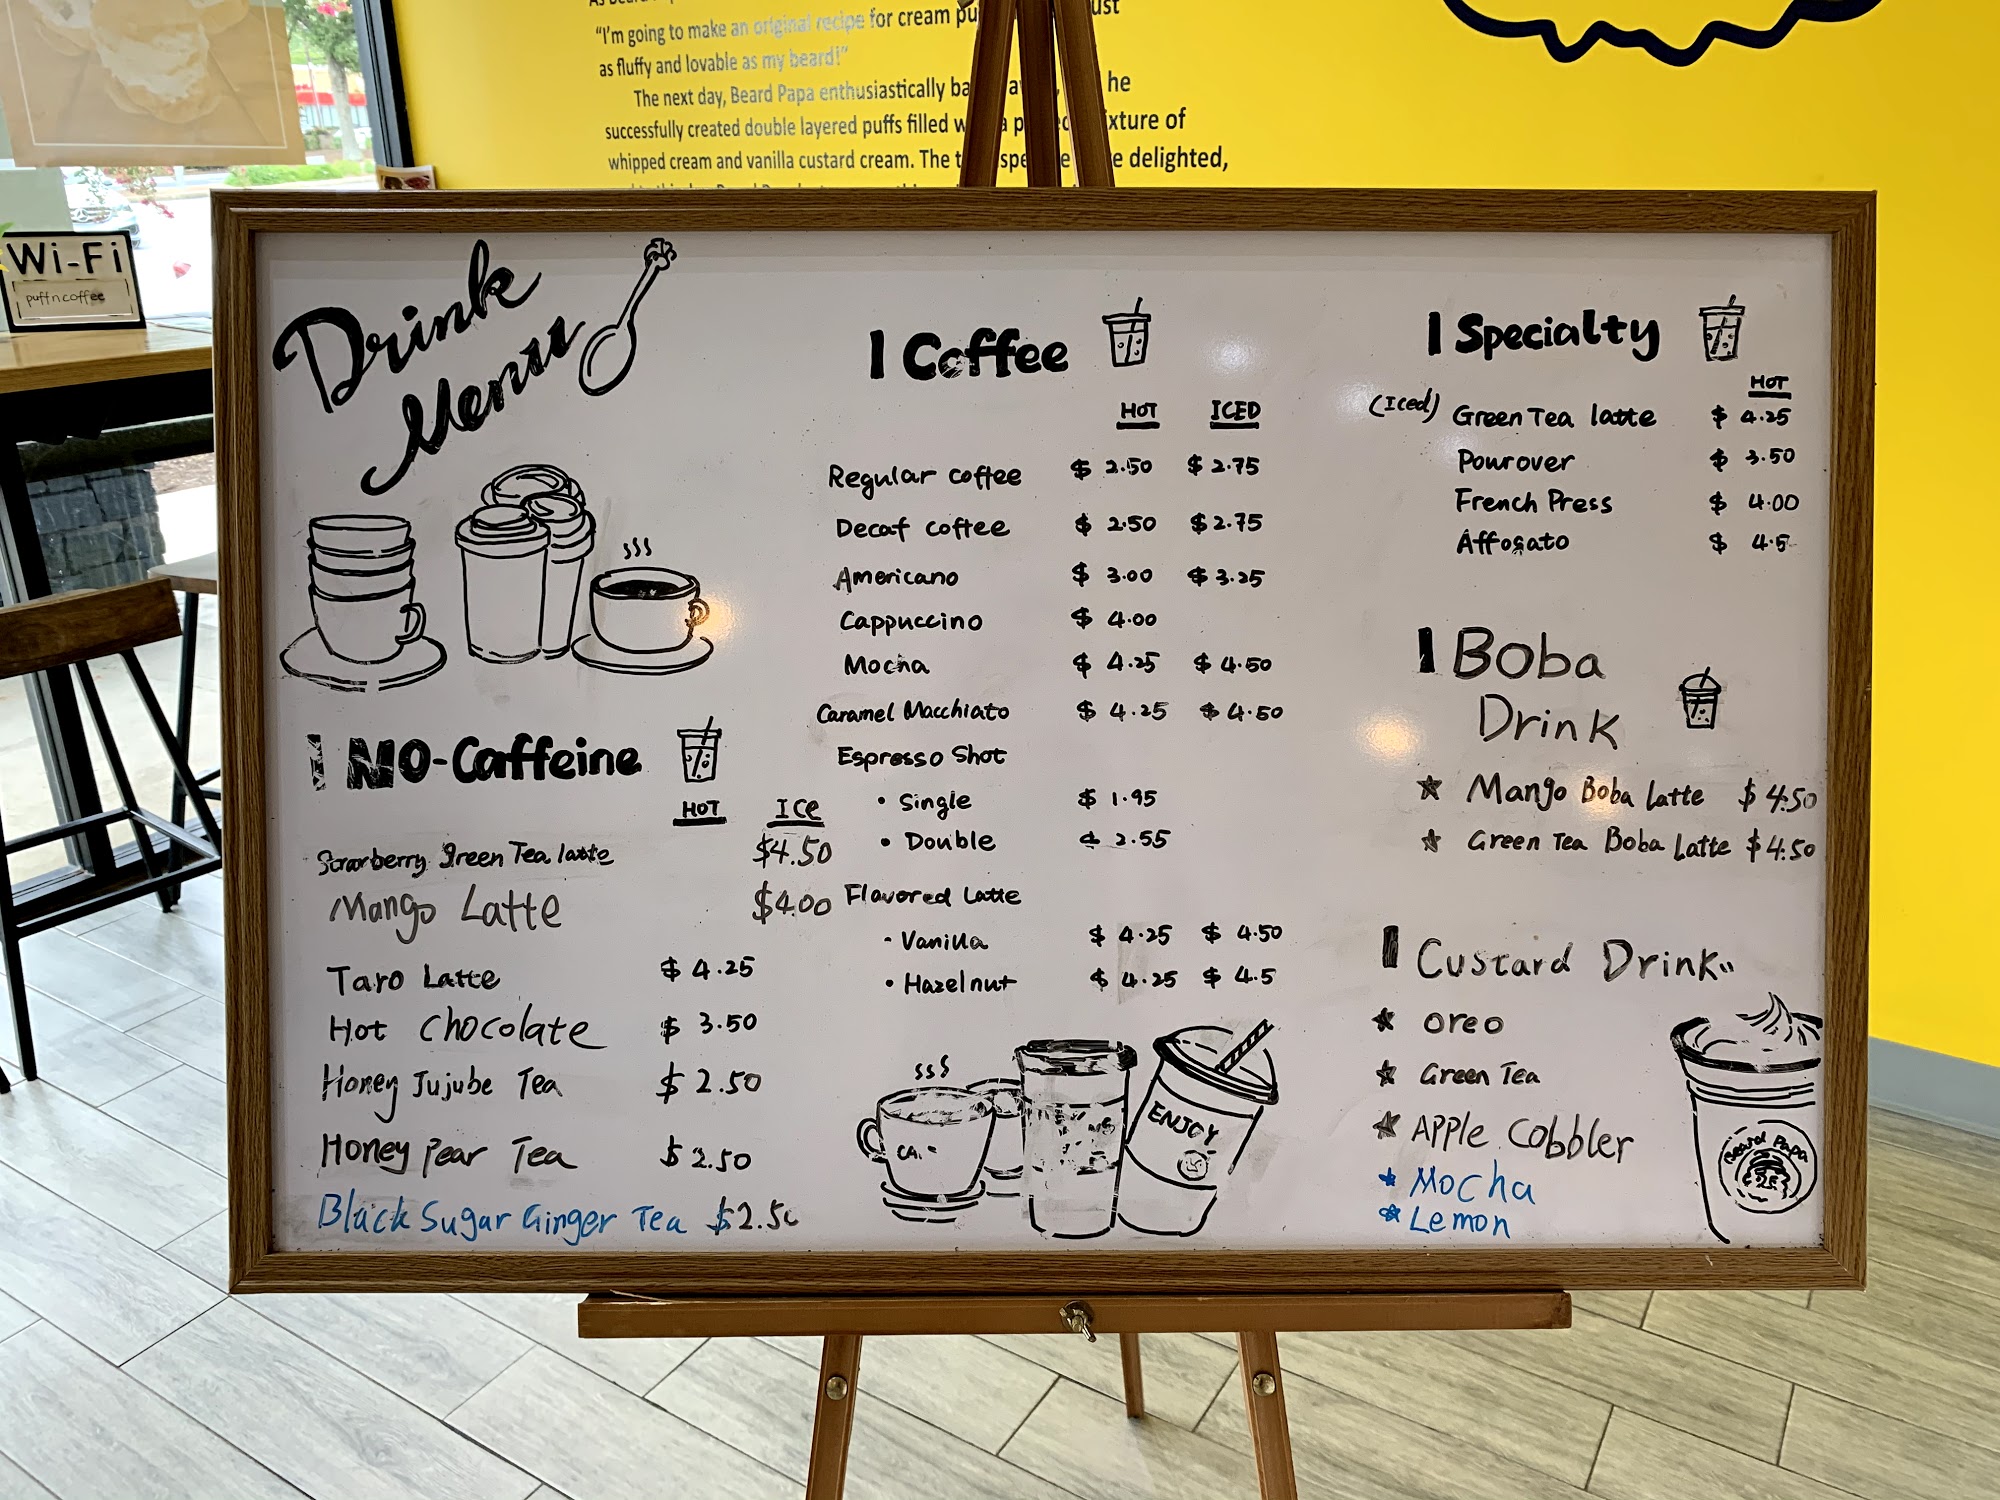 "I'm going to make an original recipe for cream pu ust
as fluffy and lovable as my beard!"
The next day, Beard Papa enthusiastically ba he
successfully created double layered puffs filled w a p ixture of
whipped cream and vanilla custard cream. The t spe e delighted,
Wi-Fi
puffncoffee
Drink
Menu
I NO-Caffeine
HOT ICe
Strawberry Green Tea latte $4.50
Mango Latte $4.00
Taro Latte $ 4.25
Hot Chocolate $ 3.50
Honey Jujube Tea $ 2.50
Honey Pear Tea $ 2.50
Black Sugar Ginger Tea $2.50
I Coffee
HOT ICED
Regular coffee $ 2.50 $ 2.75
Decaf coffee $ 2.50 $ 2.75
Americano $ 3.00 $ 3.25
Cappuccino $ 4.00
Mocha $ 4.25 $ 4.50
Caramel Macchiato $ 4.25 $ 4.50
Espresso Shot
• Single $ 1.95
• Double $ 2.55
Flavored Latte
• Vanilla $ 4.25 $ 4.50
• Hazelnut $ 4.25 $ 4.5
ENJOY
I Specialty
HOT
(Iced) Green Tea latte $ 4.25
Pourover $ 3.50
French Press $ 4.00
Affogato $ 4.5
I Boba
Drink
☆ Mango Boba Latte $ 4.50
☆ Green Tea Boba Latte $ 4.50
I Custard Drink
☆ Oreo
☆ Green Tea
☆ Apple Cobbler
☆ Mocha
☆ Lemon
Beard Papa